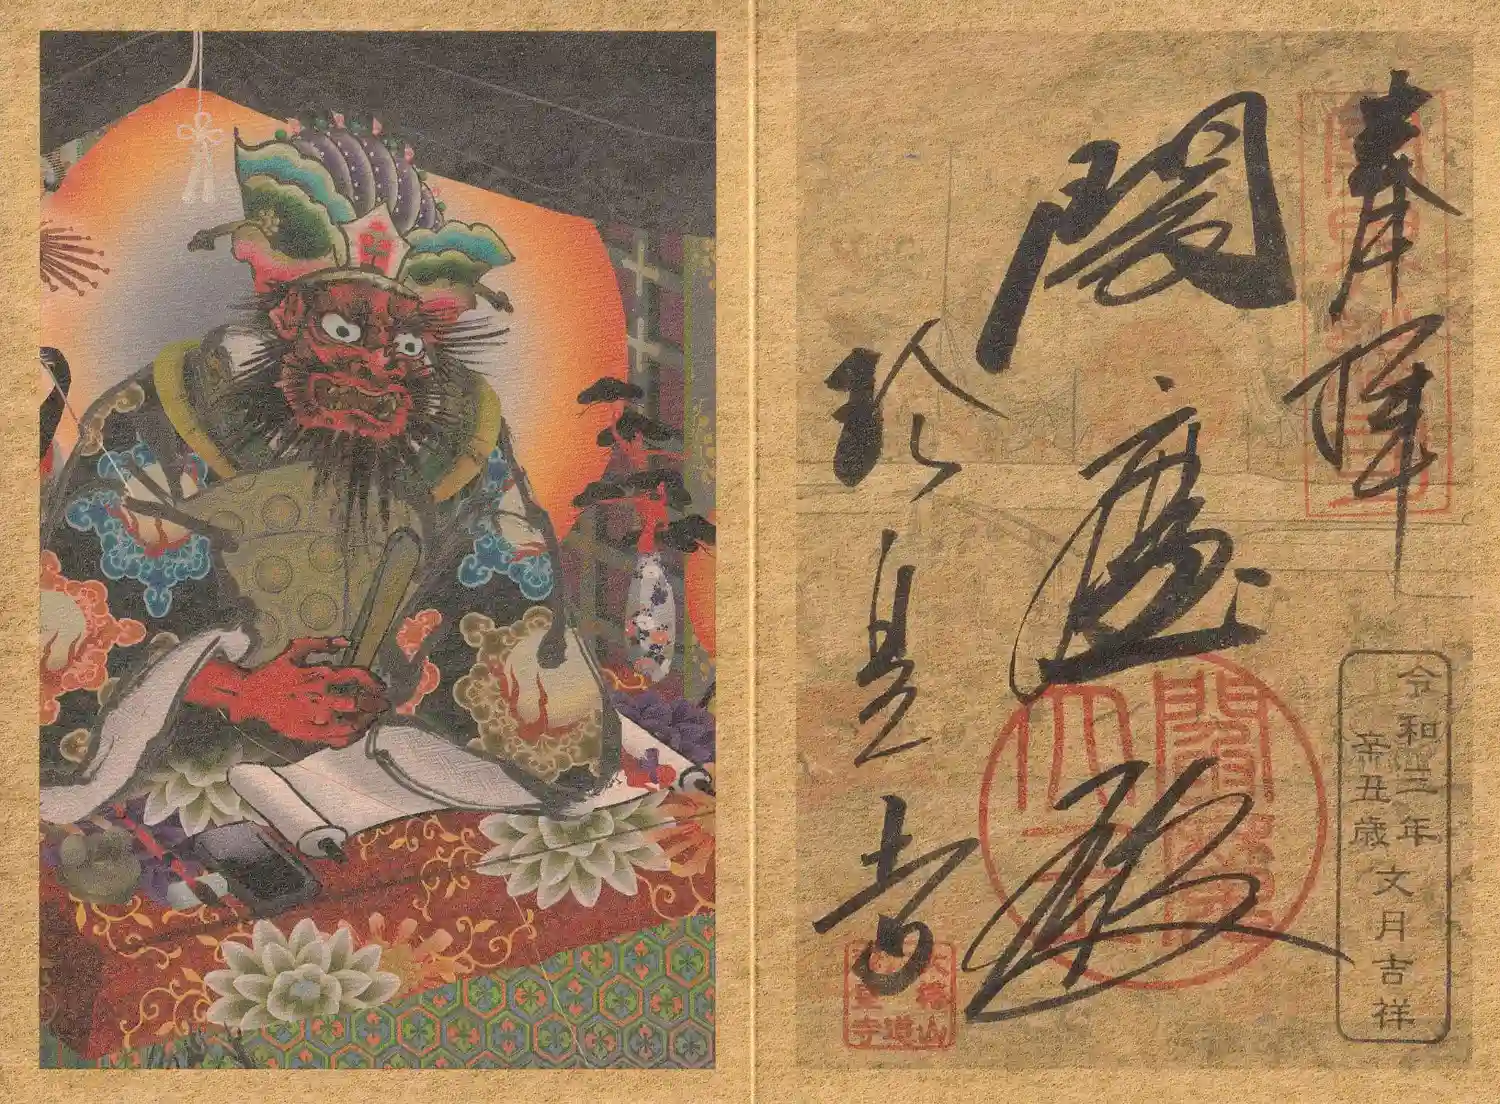 奉拝
閻魔殿
珍皇寺
令和三年
辛丑歳
文月吉祥
閻魔
大王
大椿山
六道
珍皇寺